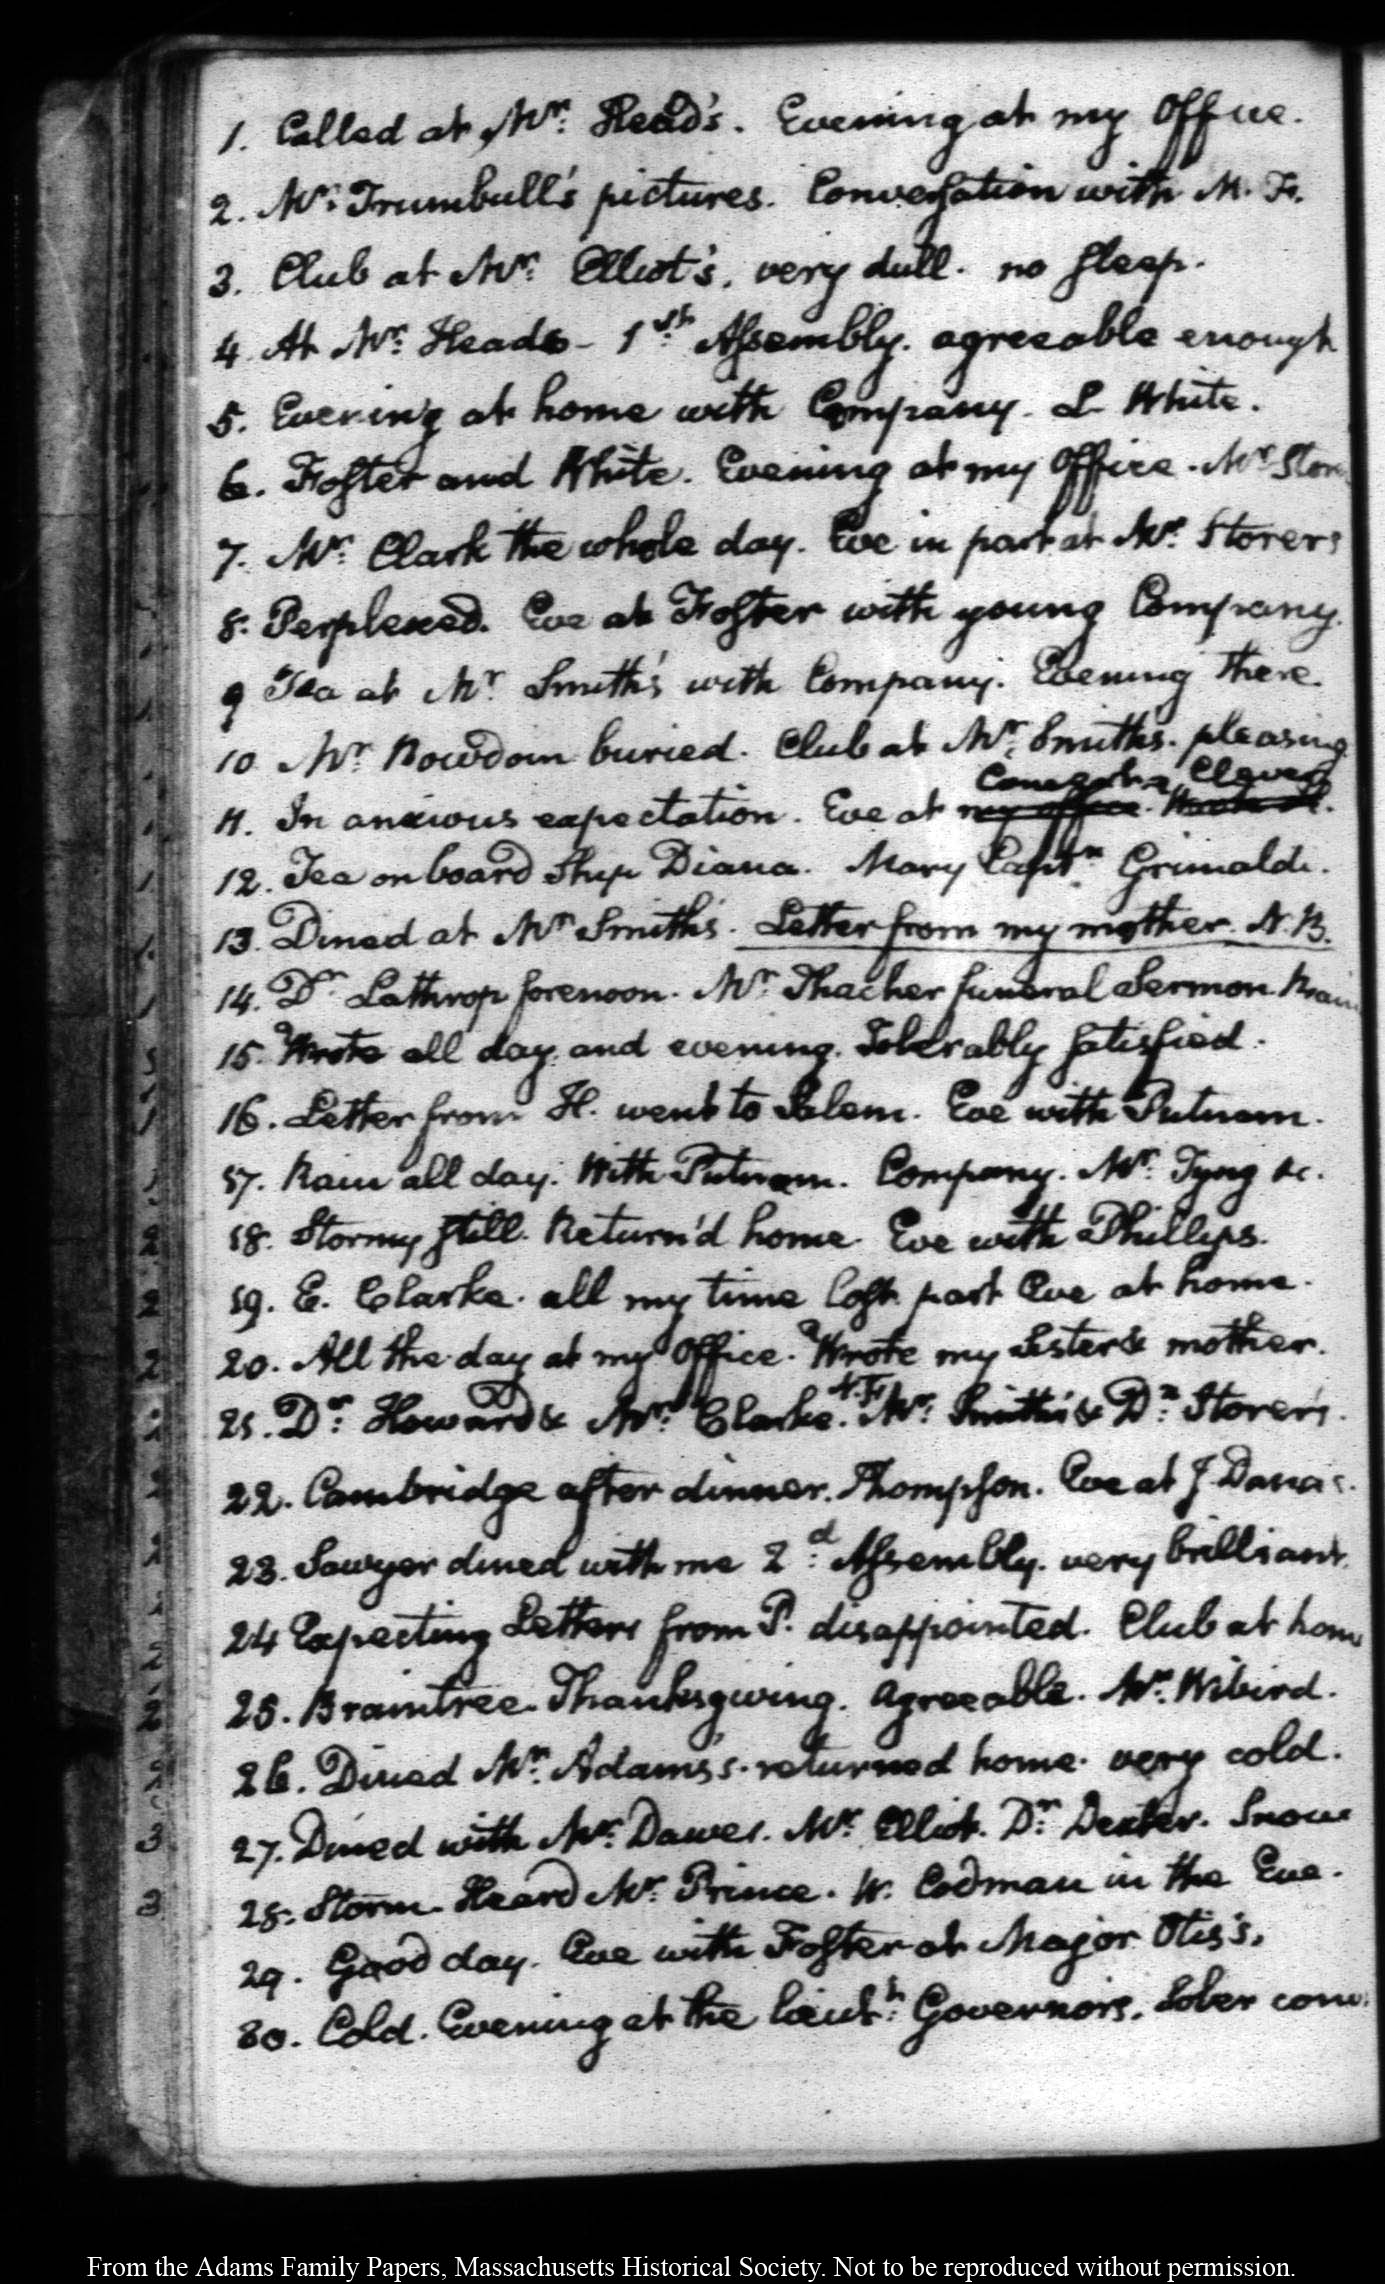 1. Called at Mr. Head's. Evening at my Office.
2. Mr. Trumbull's pictures. Conversation with M. Fr.
3. Club at Mr. Elliot's, very dull. no sleep.
4 At Mr. Heads - 1st. Assembly. agreeable enough
5. Evening at home with Company. L White.
6. Foster and White. Evening at my Office. Mr. Stor
7. Mr. Clark the whole day. Eve in part at Mr. Storers
8. Perplexed. Eve at Foster with young Company.
9 Tea at Mr Smith's with Company. Evening there.
10 Mr Bowdoin buried. Club at Mr. Smith's. pleasing
Clever
11. In anxious expectation. Eve at my office.
12. Tea on board Ship Diana. Mary Captn. Grimaldi.
13. Dined at Mr Smith's. Letter from my mother. N.B.
14. Dr. Lathrop forenoon. Mr. Thacher funeral Sermon.
15. Wrote all day and evening. Tolerably satisfied.
16. Letter from H. went to Salem. Eve with Putnam.
17. Rain all day. With Putnam. Company. Mr. Tyng &c.
18. Stormy still. Return'd home. Eve with Phillips.
19. E. Clarke. all my time lost. part Eve at home.
20. All the day at my Office. Wrote my Sister & mother.
N. Fr.
21. Dr. Howard & Mr. Clarke. Mr. Smith's & Dr. Storer's.
22. Cambridge after dinner. Thompson. Eve at J Dana's.
23. Sawyer dined with me 2d. Assembly. very brilliant.
24 Expecting Letters from P. disappointed. Club at home
25. Braintree. Thanksgiving. agreeable. Mr. Wibird.
26. Dined Mr. Adams's. returned home. very cold.
27. Dined with Mr. Dawes. Mr. Elliot. Dr. Dexter. Snow
28. Storm. Heard Mr. Prince. W. Codman in the Eve.
29. Good day. Eve with Foster at Major Otis's.
30. Cold. Evening at the Lieutt. Governors. Sober conv.
From the Adams Family Papers, Massachusetts Historical Society. Not to be reproduced without permission.